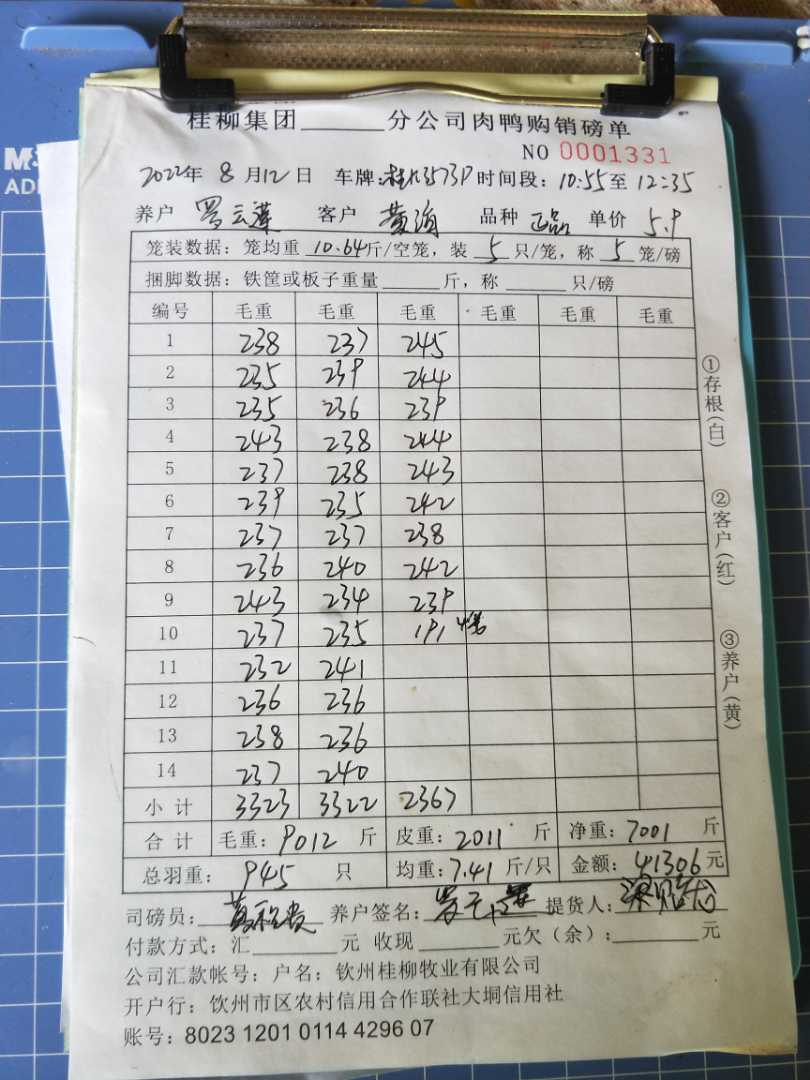 桂柳集团______分公司肉鸭购销磅单
NO 0001331
2022年 8月12日 车牌: 桂 时间段: 10:55至 12:35
养户 罗云莲 客户 黄海 品种 正品 单价 5.9
笼装数据: 笼均重 10.64斤/空笼, 装 5 只/笼, 称 5 笼/磅
捆脚数据: 铁筐或板子重量______斤, 称______只/磅
编号 毛重 毛重 毛重 毛重 毛重 毛重
1 238 237 245
2 235 239 244
3 235 236 239
4 243 238 244
5 237 238 243
6 239 235 242
7 237 237 238
8 236 240 242
9 243 234 239
10 237 235 191 4笼
11 232 241
12 236 236
13 238 236
14 237 240
小计 3323 3322 2367
合计 毛重: 9012 斤 皮重: 2011 斤 净重: 7001 斤
总羽重: 945 只 均重: 7.41 斤/只 金额: 41306元
司磅员: 养户签名: 罗云莲 提货人:
付款方式: 汇______元 收现______元欠(余):______元
公司汇款帐号: 户名: 钦州桂柳牧业有限公司
开户行: 钦州市区农村信用合作联社大垌信用社
账号: 8023 1201 0114 4296 07
①存根(白)
②客户(红)
③养户(黄)